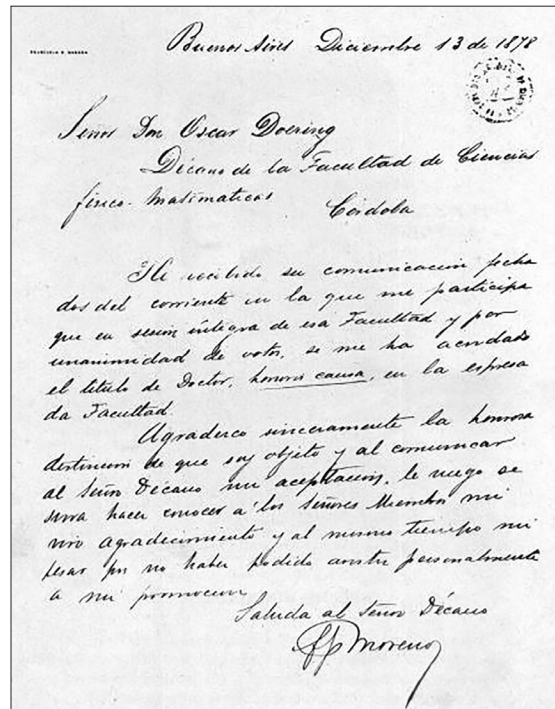 FRANCISCO P. MORENO
Buenos Aires Diciembre 13 de 1878
Señor Don Oscar Doering
Décano de la Facultad de Ciencias
físico-Matematicas
Córdoba
He recibido su comunicacion fecha
dos del corriente en la que me participa
que en sesion integra de esa Facultad y por
unanimidad de votos, se me ha acordado
el titulo de Doctor, honoris causa, en la espresa
da Facultad.
Agradezco sinceramente la honrosa
distincion de que soy objeto y al comunicar
al Señor Décano mi aceptacion, le ruego se
sirva hacer conocer a los Señores Miembros mi
vivo agradecimiento y al mismo tiempo mi
pesar por no haber podido asistir personalmente
a mi promocion
Saluda al Señor Décano
F P Moreno